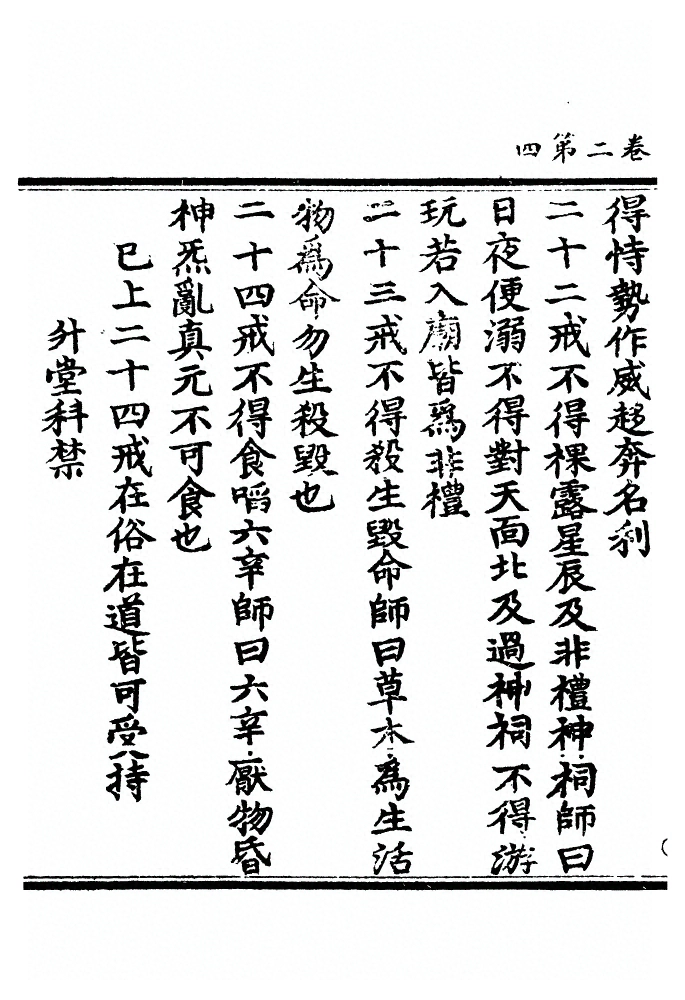 四第二卷
得恃勢作威趍奔名利
二十二戒不得裸露星辰及非禮神祠師曰
日夜便溺不得對天面北及過神祠不得游
玩若入廟皆爲非禮
二十三戒不得殺生毀命師曰草木爲生活
物爲命勿生殺毀也
二十四戒不得食啗六辛師曰六辛厭物昏
神炁亂真元不可食也
已上二十四戒在俗在道皆可受持
升堂科禁